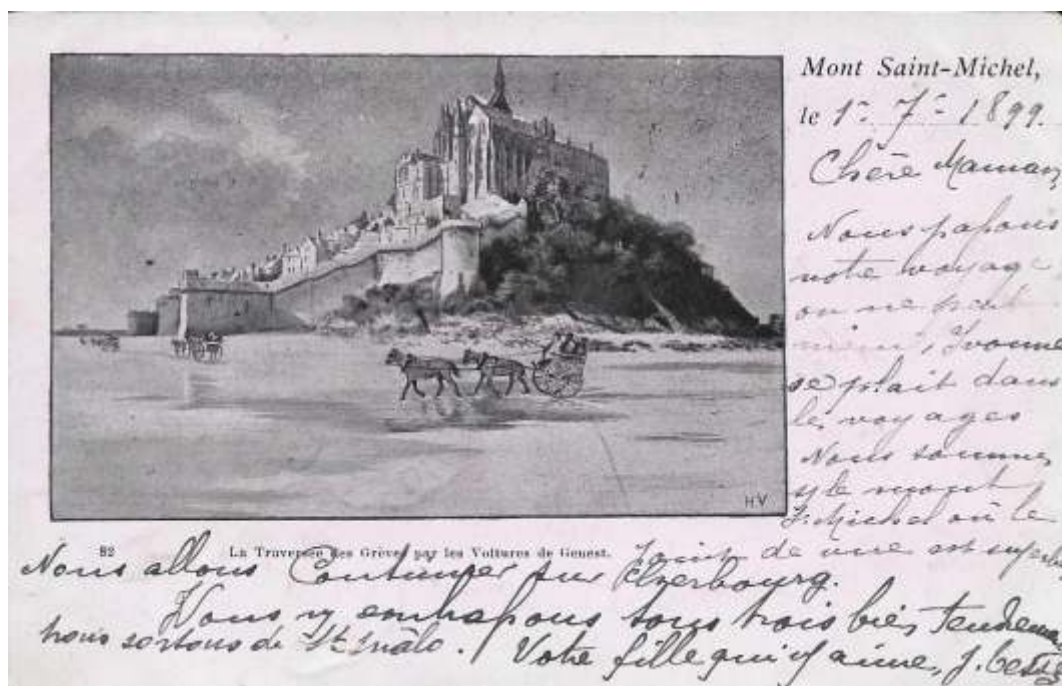 Mont Saint-Michel,
le 1er 7re 1899.
Chère Maman
Nous passons
notre voyage
on ne peut
mieux, Yvonne
se plait dans
les voyages
Nous sommes
le mont
St Michel où le
point de vue est superbe
82 La Traversée des Grèves par les Voitures de Genest.
Nous allons Continuer sur Cherbourg.
Nous embrassons tous trois bien tendrement
nous sortons de St Malo. Votre fille qui aime, J.
HV